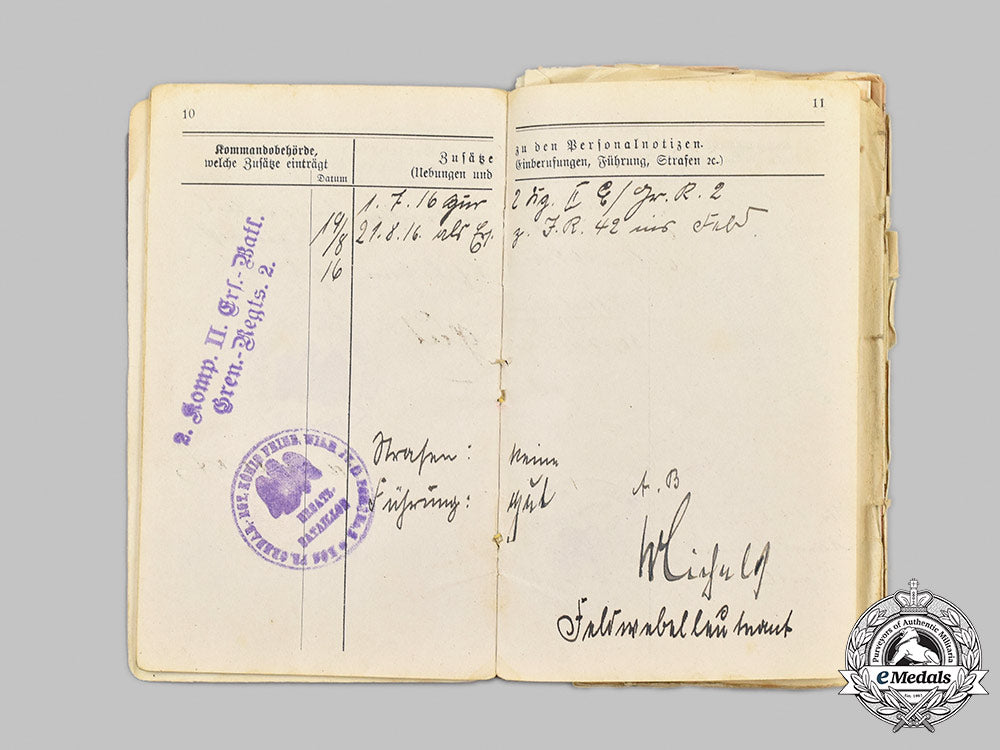 10
Kommandobehörde,
welche Zusätze einträgt
Datum
Zusätze
(Uebungen und
2. Komp. II. Ers.-Batl.
Gren.-Regts. 2.
19/8 16
1. 7. 16 zur
21.8.16. als Ers.
Strafen:
Führung:
KÖNIG FRIED. WILH. IV.
ERSATZ-
BATAILLON
11
zu den Personalnotizen.
Einberufungen, Führung, Strafen ꝛc.)
2 II E/Gr. R. 2
z. J. R. 42 ins Feld.
keine
gut
A. B
Feldwebelleutnant
Purveyors of Authentic Militaria
eMedals
Est. 1967